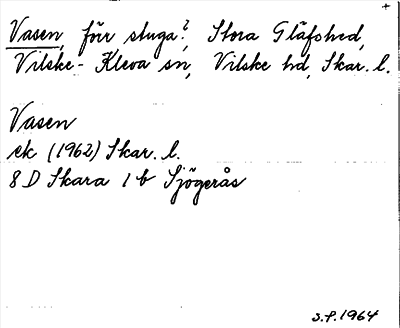 +
Vasen, förr stuga?, Stora Gläfshed,
Vilske-Kleva sn, Vilske hd, Skar. l.
Vasen
ek (1962) Skar. l.
8 D Skara 1 b Sjögerås
S.F. 1964